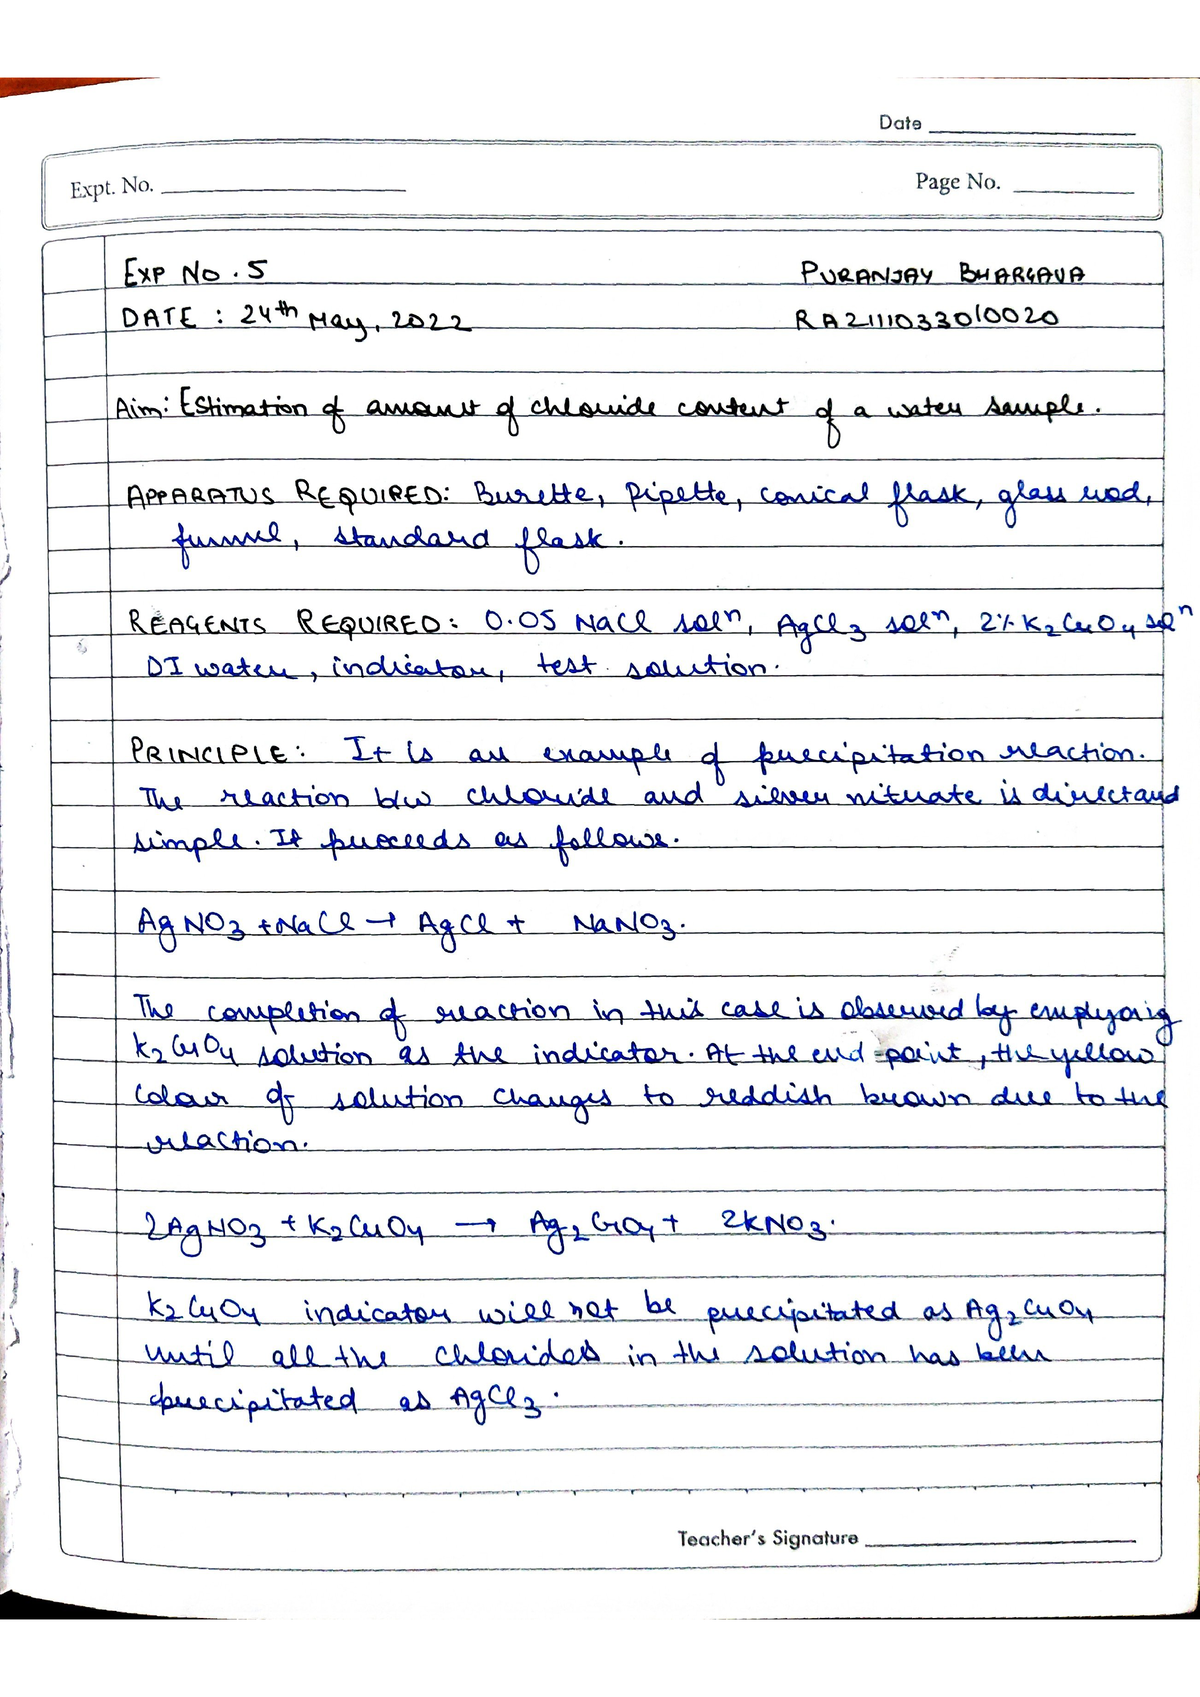 Date
Expt. No.
Page No.
EXP NO. 5
PURANJAY BHARGAVA
DATE : 24th May, 2022
RA2111033010020
Aim: Estimation of amount of chloride content of a water sample.
APPARATUS REQUIRED: Burette, Pipette, conical flask, glass rod,
funnel, standard flask.
REAGENTS REQUIRED: 0.05 NaCl solⁿ, AgCl3 solⁿ, 2% K2CrO4 solⁿ
DI water, indicator, test solution.
PRINCIPLE: It is an example of precipitation reaction.
The reaction b/w chloride and silver nitrate is direct and
simple. It proceeds as follows.
AgNO3 + NaCl → AgCl + NaNO3.
The completion of reaction in this case is observed by emplyoig
K2CrO4 solution as the indicator. At the end-point, the yellow
colour of solution changes to reddish brown due to the
reaction.
2AgNO3 + K2CrO4 → Ag2CrO4 + 2KNO3.
K2CrO4 indicator will not be precipitated as Ag2CrO4
until all the chlorides in the solution has been
precipitated as AgCl3.
Teacher's Signature